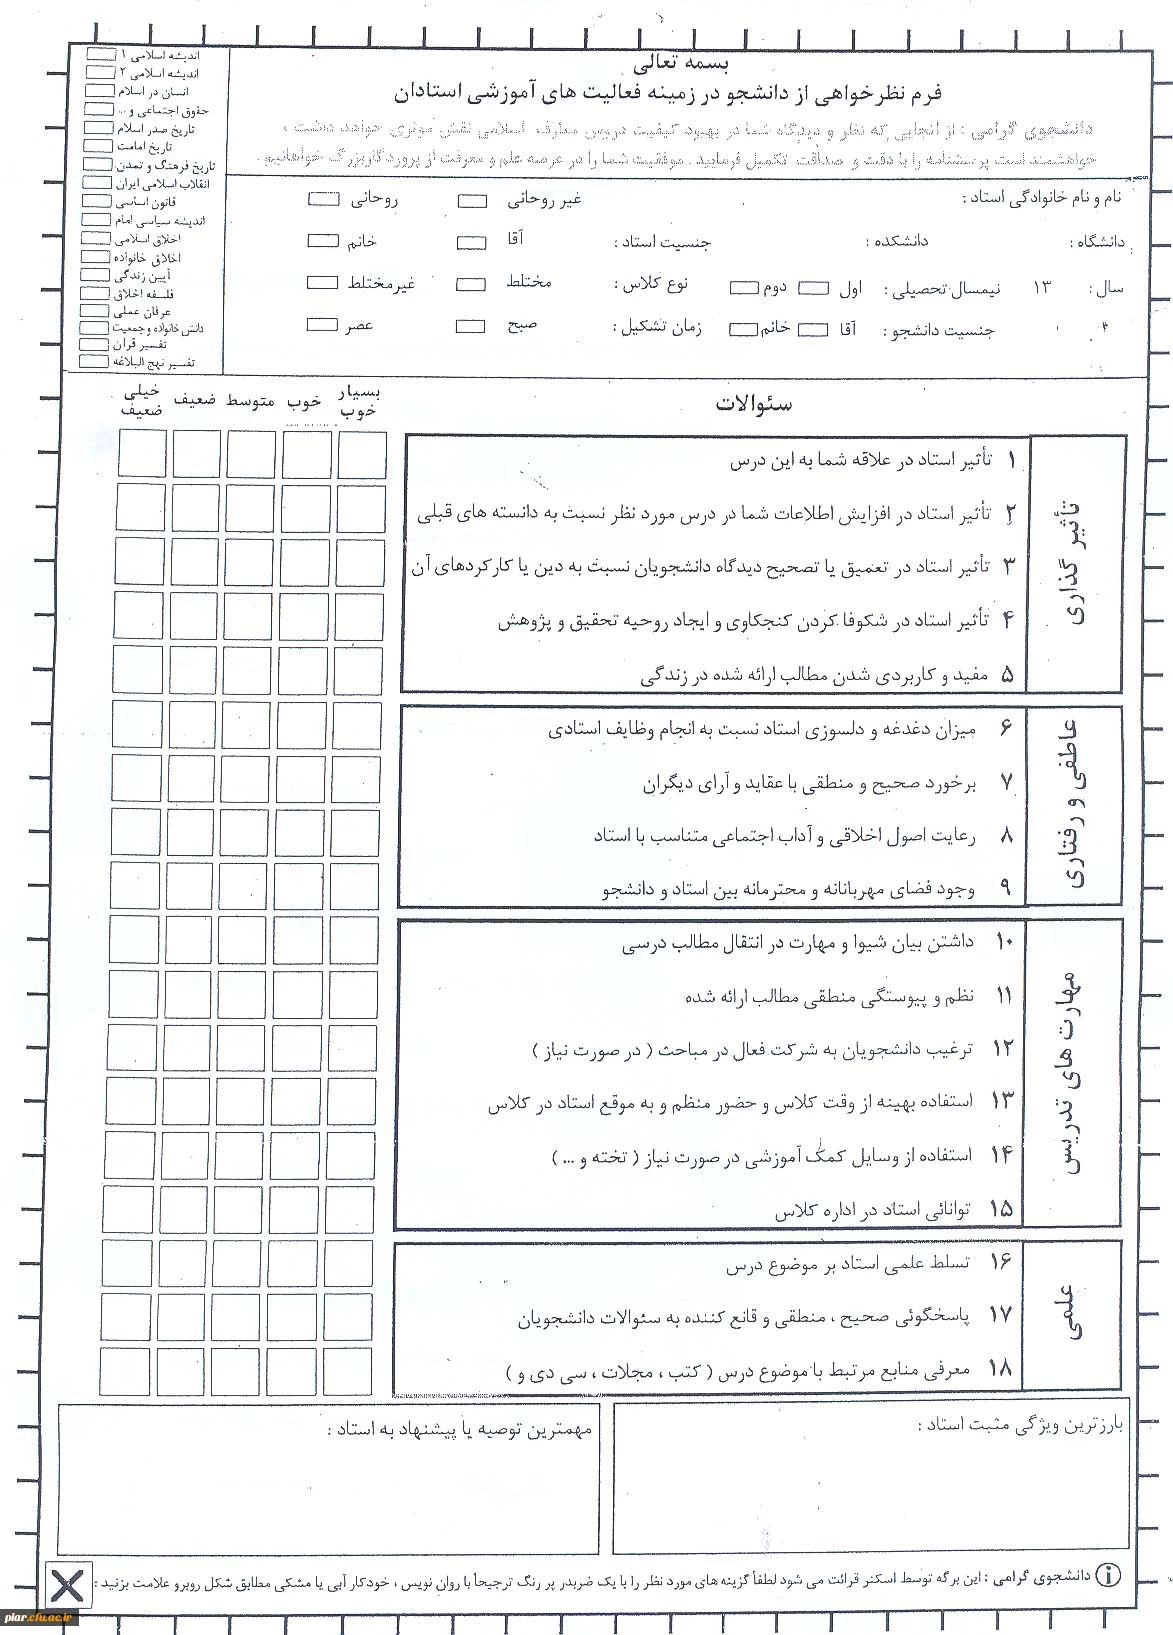 بسمه تعالی
فرم نظرخواهی از دانشجو در زمینه فعالیت های آموزشی استادان
دانشجوی گرامی : از آنجایی که نظر و دیدگاه شما در بهبود کیفیت دروس معارف اسلامی نقش موثری خواهد داشت ،
خواهشمند است پرسشنامه را با دقت و صداقت تکمیل فرمایید . موفقیت شما را در عرصه علم و معرفت از پروردگار بزرگ خواهانیم .
نام و نام خانوادگی استاد : غیر روحانی روحانی
دانشگاه : دانشکده : جنسیت استاد : آقا خانم
سال : ۱۳ نیمسال تحصیلی : اول دوم نوع کلاس : مختلط غیرمختلط
جنسیت دانشجو : آقا خانم زمان تشکیل : صبح عصر
اندیشه اسلامی ۱
اندیشه اسلامی ۲
انسان در اسلام
حقوق اجتماعی و ...
تاریخ صدر اسلام
تاریخ امامت
تاریخ فرهنگ و تمدن
انقلاب اسلامی ایران
قانون اساسی
اندیشه سیاسی امام
اخلاق اسلامی
اخلاق خانواده
آیین زندگی
فلسفه اخلاق
عرفان عملی
دانش خانواده و جمعیت
تفسیر قرآن
تفسیر نهج البلاغه
سئوالات
بسیار خوب خوب متوسط ضعیف خیلی ضعیف
تأثیر گذاری
۱ تأثیر استاد در علاقه شما به این درس
۲ تأثیر استاد در افزایش اطلاعات شما در درس مورد نظر نسبت به دانسته های قبلی
۳ تأثیر استاد در تعمیق یا تصحیح دیدگاه دانشجویان نسبت به دین یا کارکردهای آن
۴ تأثیر استاد در شکوفا کردن کنجکاوی و ایجاد روحیه تحقیق و پژوهش
۵ مفید و کاربردی شدن مطالب ارائه شده در زندگی
عاطفی و رفتاری
۶ میزان دغدغه و دلسوزی استاد نسبت به انجام وظایف استادی
۷ برخورد صحیح و منطقی با عقاید و آرای دیگران
۸ رعایت اصول اخلاقی و آداب اجتماعی متناسب با استاد
۹ وجود فضای مهربانانه و محترمانه بین استاد و دانشجو
مهارت های تدریس
۱۰ داشتن بیان شیوا و مهارت در انتقال مطالب درسی
۱۱ نظم و پیوستگی منطقی مطالب ارائه شده
۱۲ ترغیب دانشجویان به شرکت فعال در مباحث ( در صورت نیاز )
۱۳ استفاده بهینه از وقت کلاس و حضور منظم و به موقع استاد در کلاس
۱۴ استفاده از وسایل کمک آموزشی در صورت نیاز ( تخته و ... )
۱۵ توانائی استاد در اداره کلاس
علمی
۱۶ تسلط علمی استاد بر موضوع درس
۱۷ پاسخگوئی صحیح ، منطقی و قانع کننده به سئوالات دانشجویان
۱۸ معرفی منابع مرتبط با موضوع درس ( کتب ، مجلات ، سی دی و )
بارزترین ویژگی مثبت استاد :
مهمترین توصیه یا پیشنهاد به استاد :
دانشجوی گرامی : این برگه توسط اسکنر قرائت می شود لطفاً گزینه های مورد نظر را با یک ضربدر پر رنگ ترجیحاً با روان نویس ، خودکار آبی یا مشکی مطابق شکل روبرو علامت بزنید :
piar.cfu.ac.ir